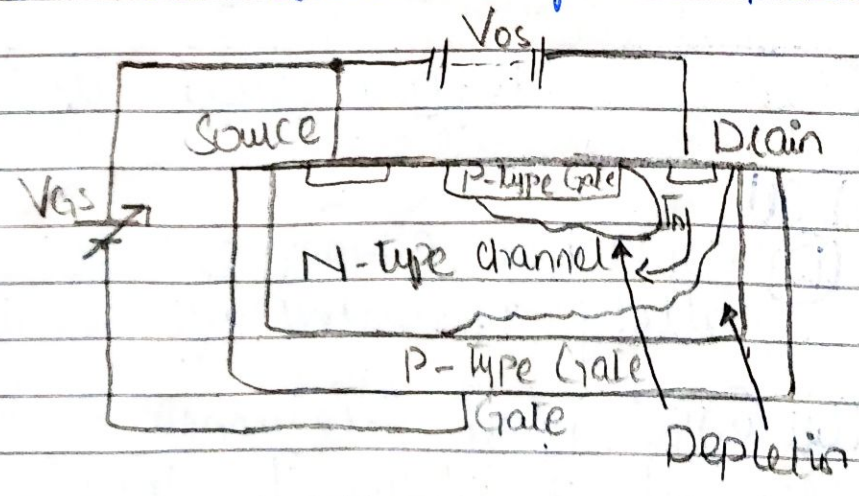 VDS
Source
Drain
VGS
P-type Gate
ID
N-type channel
P-type Gate
Gate
Depletion